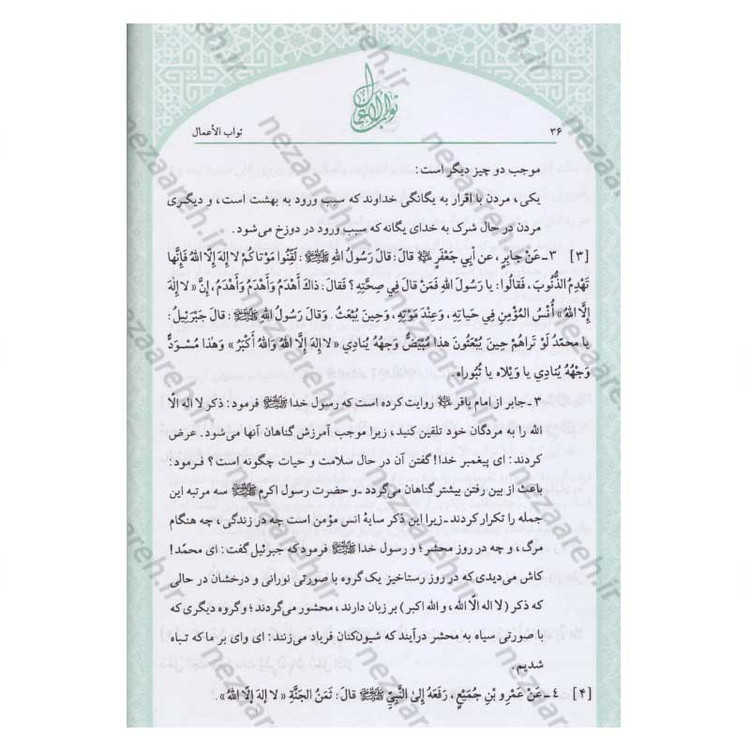 ثواب الأعمال
۳۶ ثواب الأعمال
موجب دو چیز دیگر است:
یکی، مردن با اقرار به یگانگی خداوند که سبب ورود به بهشت است، و دیگری
مردن در حال شرک به خدای یگانه که سبب ورود در دوزخ می‌شود.
[۳] ۳ـ عَنْ جابِرٍ، عن أبي جَعْفَرٍ ﷺ قالَ: قالَ رَسُولُ اللهِ ﷺ: لَقِّنُوا مَوْتاكُمْ لا إِلهَ إِلَّا اللهُ فَإِنَّها
تَهْدِمُ الذُّنُوبَ، فَقالُوا: يا رَسُولَ اللهِ فَمَنْ قالَ فِي صِحَّتِهِ؟ فَقالَ: ذاكَ أَهْدَمُ وَأَهْدَمُ وَأَهْدَمُ، إِنَّ «لا إِلهَ
إِلَّا اللهُ» أُنْسُ المُؤْمِنِ فِي حَياتِهِ، وَعِنْدَ مَوْتِهِ، وَحِينَ يُبْعَثُ. وَقالَ رَسُولُ اللهِ ﷺ: قالَ جَبْرَئِيلُ:
يا محمّدُ لَوْ تَراهُمْ حِينَ يُبْعَثُونَ هذا مُبْيَضٌّ وَجْهُهُ يُنادِي «لا إِلهَ إِلَّا اللهُ وَاللهُ أَكْبَرُ» وَهذا مُسْوَدٌّ
وَجْهُهُ يُنادِي يا وَيْلاه يا ثُبُوراه.
۳ـ جابر از امام باقر روایت کرده است که رسول خدا ﷺ فرمود: ذکر لا اله الّا
الله را به مردگان خود تلقین کنید، زیرا موجب آمرزش گناهان آنها می‌شود. عرض
کردند: ای پیغمبر خدا! گفتن آن در حال سلامت و حیات چگونه است؟ فرمود:
باعث از بین رفتن بیشتر گناهان می‌گردد ـ و حضرت رسول اکرم ﷺ سه مرتبه این
جمله را تکرار کردند ـ زیرا این ذکر سایهٔ انس مؤمن است چه در زندگی، چه هنگام
مرگ، و چه در روز محشر؛ و رسول خدا ﷺ فرمود که جبرئیل گفت: ای محمّد!
کاش می‌دیدی که در روز رستاخیز یک گروه با صورتی نورانی و درخشان در حالی
که ذکر (لا اله الّا الله، و الله اکبر) بر زبان دارند، محشور می‌گردند؛ و گروه دیگری که
با صورتی سیاه به محشر درآیند که شیون‌کنان فریاد می‌زنند: ای وای بر ما که تباه
شدیم.
[۴] ۴ـ عَنْ عَمْرِو بْنِ جُمَيْعٍ، رَفَعَهُ إِلىٰ النَّبِيِّ ﷺ قالَ: ثَمَنُ الجَنَّةِ «لا إِلهَ إِلَّا اللهُ».
nezaareh.ir